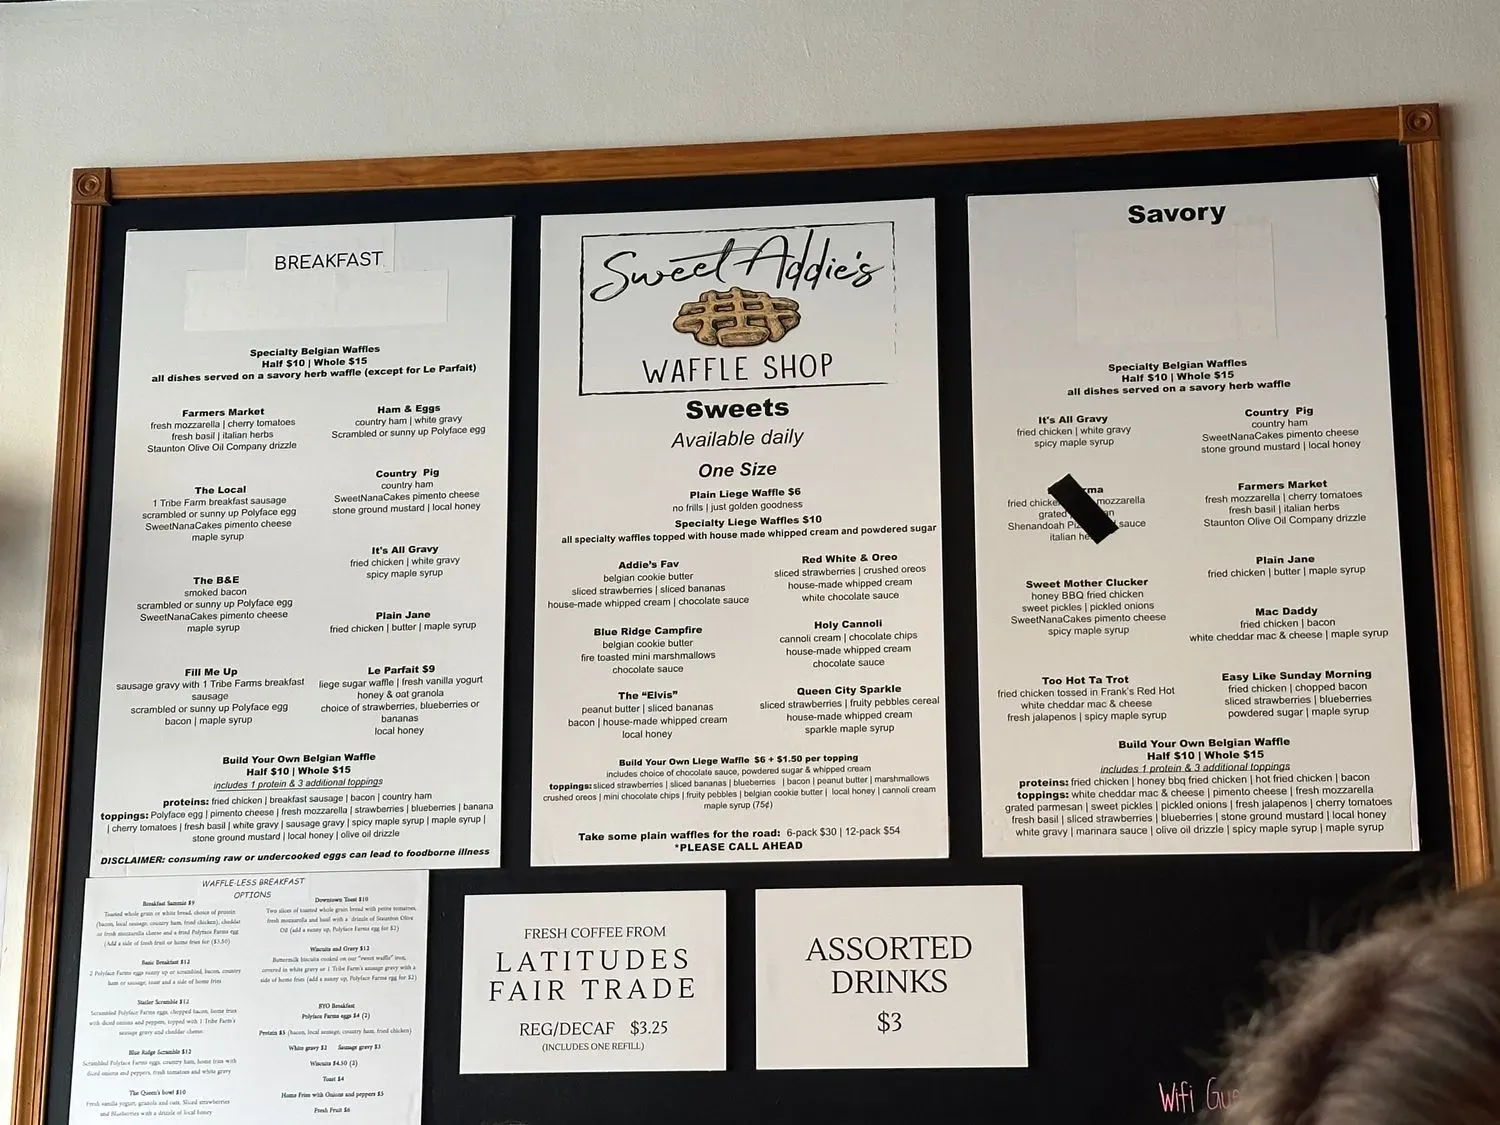 BREAKFAST
Specialty Belgian Waffles
Half $10 | Whole $15
all dishes served on a savory herb waffle (except for Le Parfait)
Farmers Market
fresh mozzarella | cherry tomatoes
fresh basil | italian herbs
Staunton Olive Oil Company drizzle
The Local
1 Tribe Farm breakfast sausage
scrambled or sunny up Polyface egg
SweetNanaCakes pimento cheese
maple syrup
The B&E
smoked bacon
scrambled or sunny up Polyface egg
SweetNanaCakes pimento cheese
maple syrup
Fill Me Up
sausage gravy with 1 Tribe Farms breakfast
sausage
scrambled or sunny up Polyface egg
bacon | maple syrup
Ham & Eggs
country ham | white gravy
Scrambled or sunny up Polyface egg
Country Pig
country ham
SweetNanaCakes pimento cheese
stone ground mustard | local honey
It's All Gravy
fried chicken | white gravy
spicy maple syrup
Plain Jane
fried chicken | butter | maple syrup
Le Parfait $9
liege sugar waffle | fresh vanilla yogurt
honey & oat granola
choice of strawberries, blueberries or
bananas
local honey
Build Your Own Belgian Waffle
Half $10 | Whole $15
includes 1 protein & 3 additional toppings
proteins: fried chicken | breakfast sausage | bacon | country ham
toppings: Polyface egg | pimento cheese | fresh mozzarella | strawberries | blueberries | banana
| cherry tomatoes | fresh basil | white gravy | sausage gravy | spicy maple syrup | maple syrup |
stone ground mustard | local honey | olive oil drizzle
DISCLAIMER: consuming raw or undercooked eggs can lead to foodborne illness
Sweet Addie's
WAFFLE SHOP
Sweets
Available daily
One Size
Plain Liege Waffle $6
no frills | just golden goodness
Specialty Liege Waffles $10
all specialty waffles topped with house made whipped cream and powdered sugar
Addie's Fav
belgian cookie butter
sliced strawberries | sliced bananas
house-made whipped cream | chocolate sauce
Blue Ridge Campfire
belgian cookie butter
fire toasted mini marshmallows
chocolate sauce
The “Elvis”
peanut butter | sliced bananas
bacon | house-made whipped cream
local honey
Red White & Oreo
sliced strawberries | crushed oreos
house-made whipped cream
white chocolate sauce
Holy Cannoli
cannoli cream | chocolate chips
house-made whipped cream
chocolate sauce
Queen City Sparkle
sliced strawberries | fruity pebbles cereal
house-made whipped cream
sparkle maple syrup
Build Your Own Liege Waffle $6 + $1.50 per topping
includes choice of chocolate sauce, powdered sugar & whipped cream
toppings: sliced strawberries | sliced bananas | blueberries | bacon | peanut butter | marshmallows
crushed oreos | mini chocolate chips | fruity pebbles | belgian cookie butter | local honey | cannoli cream
maple syrup (75¢)
Take some plain waffles for the road: 6-pack $30 | 12-pack $54
*PLEASE CALL AHEAD
Savory
Specialty Belgian Waffles
Half $10 | Whole $15
all dishes served on a savory herb waffle
It's All Gravy
fried chicken | white gravy
spicy maple syrup
fried mozzarella
grated
Shenandoah sauce
italian
Sweet Mother Clucker
honey BBQ fried chicken
sweet pickles | pickled onions
SweetNanaCakes pimento cheese
spicy maple syrup
Too Hot Ta Trot
fried chicken tossed in Frank's Red Hot
white cheddar mac & cheese
fresh jalapenos | spicy maple syrup
Country Pig
country ham
SweetNanaCakes pimento cheese
stone ground mustard | local honey
Farmers Market
fresh mozzarella | cherry tomatoes
fresh basil | italian herbs
Staunton Olive Oil Company drizzle
Plain Jane
fried chicken | butter | maple syrup
Mac Daddy
fried chicken | bacon
white cheddar mac & cheese | maple syrup
Easy Like Sunday Morning
fried chicken | chopped bacon
sliced strawberries | blueberries
powdered sugar | maple syrup
Build Your Own Belgian Waffle
Half $10 | Whole $15
includes 1 protein & 3 additional toppings
proteins: fried chicken | honey bbq fried chicken | hot fried chicken | bacon
toppings: white cheddar mac & cheese | pimento cheese | fresh mozzarella
grated parmesan | sweet pickles | pickled onions | fresh jalapenos | cherry tomatoes
fresh basil | sliced strawberries | blueberries | stone ground mustard | local honey
white gravy | marinara sauce | olive oil drizzle | spicy maple syrup | maple syrup
WAFFLE-LESS BREAKFAST
OPTIONS
Breakfast Sammie $9
Toasted whole grain or white bread, choice of protein
(bacon, local sausage, country ham, fried chicken), cheddar
or fresh mozzarella cheese and a fried Polyface Farms egg
(Add a side of fresh fruit or home fries for ($3.50)
Basic Breakfast $12
2 Polyface Farms eggs sunny up or scrambled, bacon, country
ham or sausage, toast and a side of home fries
Statler Scramble $12
Scrambled Polyface Farms eggs, chopped bacon, home fries
with diced onions and peppers, topped with 1 Tribe Farm's
sausage gravy and cheddar cheese
Blue Ridge Scramble $12
Scrambled Polyface Farms eggs, country ham, home fries with
diced onions and peppers, fresh tomatoes and white gravy
The Queen's bowl $10
Fresh vanilla yogurt, granola and oats, Sliced strawberries
and Blueberries with a drizzle of local honey
Downtown Toast $10
Two slices of toasted whole grain bread with petite tomatoes,
fresh mozzarella and basil with a drizzle of Staunton Olive
Oil (add a sunny up, Polyface Farms egg for $2)
Wiscuits and Gravy $12
Buttermilk biscuits cooked on our "sweet waffle" iron,
covered in white gravy or 1 Tribe Farm's sausage gravy with a
side of home fries (add a sunny up, Polyface Farms egg for $2)
BYO Breakfast
Polyface Farms eggs $4 (2)
Protein $5 (bacon, local sausage, country ham, fried chicken)
White gravy $2 Sausage gravy $3
Wiscuits $4.50 (2)
Toast $4
Home Fries with Onions and peppers $5
Fresh Fruit $6
FRESH COFFEE FROM
LATITUDES
FAIR TRADE
REG/DECAF $3.25
(INCLUDES ONE REFILL)
ASSORTED
DRINKS
$3
Wifi